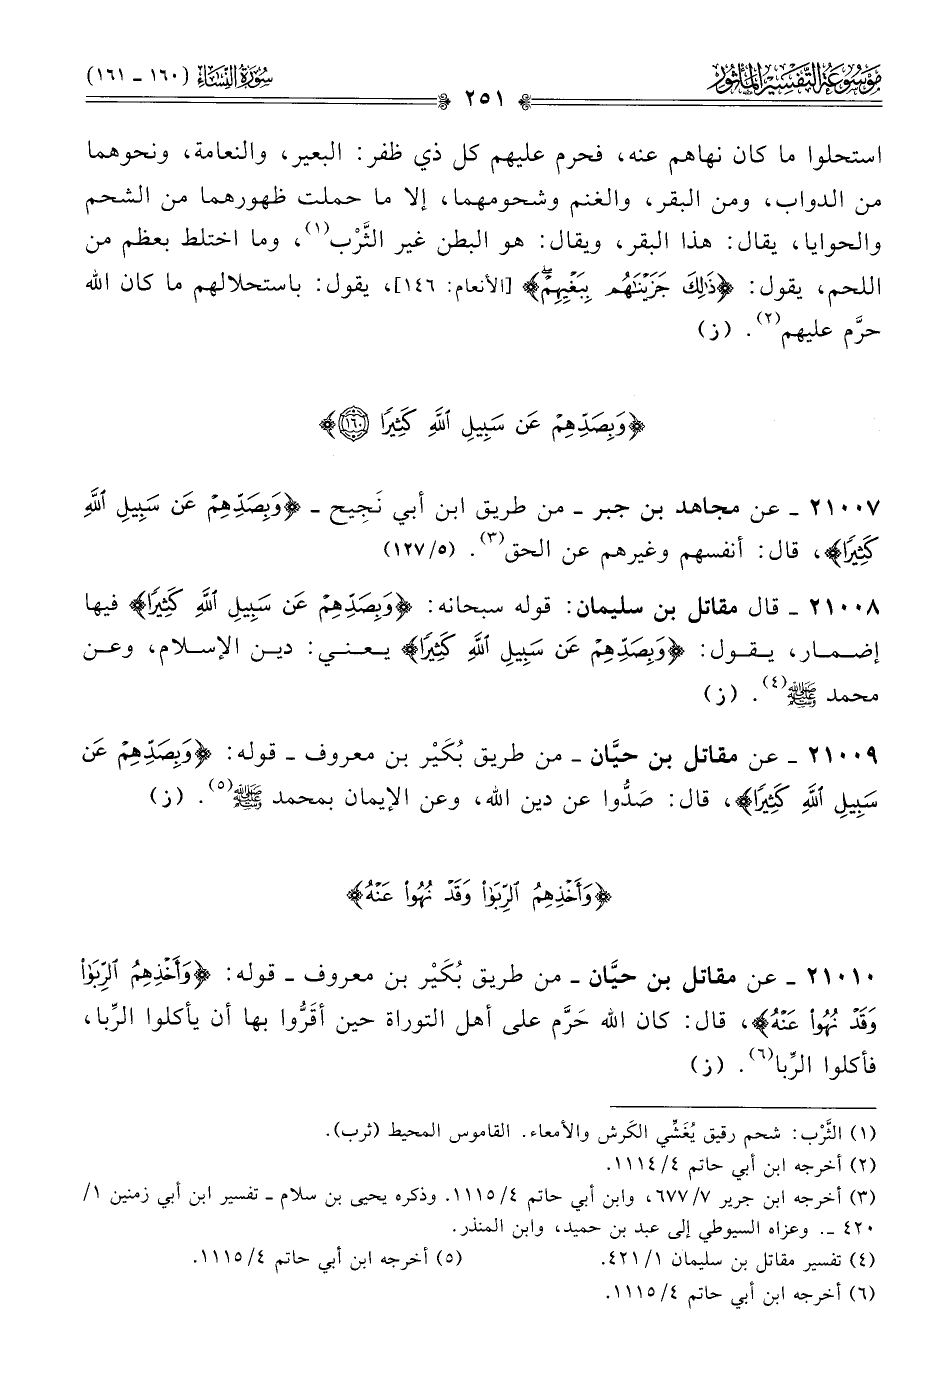 مَوْسُوعَة التَّفْسِير المَأْثُور
سُورَةُ النِّسَاءِ (١٦٠ - ١٦١)
٢٥١
استحلوا ما كان نهاهم عنه، فحرم عليهم كل ذي ظفر: البعير، والنعامة، ونحوهما
من الدواب، ومن البقر، والغنم وشحومهما، إلا ما حملت ظهورهما من الشحم
والحوايا، يقال: هذا البقر، ويقال: هو البطن غير الثَّرْب(١)، وما اختلط بعظم من
اللحم، يقول: ﴿ذَٰلِكَ جَزَيْنَـٰهُم بِبَغْيِهِمْۖ﴾ [الأنعام: ١٤٦]، يقول: باستحلالهم ما كان الله
حرَّم عليهم(٢). (ز)
﴿وَبِصَدِّهِمْ عَن سَبِيلِ ٱللَّهِ كَثِيرًا ١٦٠﴾
٢١٠٠٧ ـ عن مجاهد بن جبر ـ من طريق ابن أبي نَجِيح ـ ﴿وَبِصَدِّهِمْ عَن سَبِيلِ ٱللَّهِ
كَثِيرًا﴾، قال: أنفسهم وغيرهم عن الحق(٣). (١٢٧/٥)
٢١٠٠٨ ـ قال مقاتل بن سليمان: قوله سبحانه: ﴿وَبِصَدِّهِمْ عَن سَبِيلِ ٱللَّهِ كَثِيرًا﴾ فيها
إضمار، يقول: ﴿وَبِصَدِّهِمْ عَن سَبِيلِ ٱللَّهِ كَثِيرًا﴾ يعني: دين الإسلام، وعن
محمد ﷺ(٤). (ز)
٢١٠٠٩ ـ عن مقاتل بن حيَّان ـ من طريق بُكَيْر بن معروف ـ قوله: ﴿وَبِصَدِّهِمْ عَن
سَبِيلِ ٱللَّهِ كَثِيرًا﴾، قال: صَدُّوا عن دين الله، وعن الإيمان بمحمد ﷺ(٥). (ز)
﴿وَأَخْذِهِمُ ٱلرِّبَوٰا۟ وَقَدْ نُهُوا۟ عَنْهُ﴾
٢١٠١٠ ـ عن مقاتل بن حيَّان ـ من طريق بُكَيْر بن معروف ـ قوله: ﴿وَأَخْذِهِمُ ٱلرِّبَوٰا۟
وَقَدْ نُهُوا۟ عَنْهُ﴾، قال: كان الله حَرَّم على أهل التوراة حين أقَرُّوا بها أن يأكلوا الرِّبا،
فأكلوا الرِّبا(٦). (ز)
(١) الثَّرْب: شحم رقيق يُغَشِّي الكَرش والأمعاء. القاموس المحيط (ثرب).
(٢) أخرجه ابن أبي حاتم ١١١٤/٤.
(٣) أخرجه ابن جرير ٦٧٧/٧، وابن أبي حاتم ١١١٥/٤. وذكره يحيى بن سلام ـ تفسير ابن أبي زمنين ١/
٤٢٠ ـ. وعزاه السيوطي إلى عبد بن حميد، وابن المنذر.
(٤) تفسير مقاتل بن سليمان ٤٢١/١. (٥) أخرجه ابن أبي حاتم ١١١٥/٤.
(٦) أخرجه ابن أبي حاتم ١١١٥/٤.